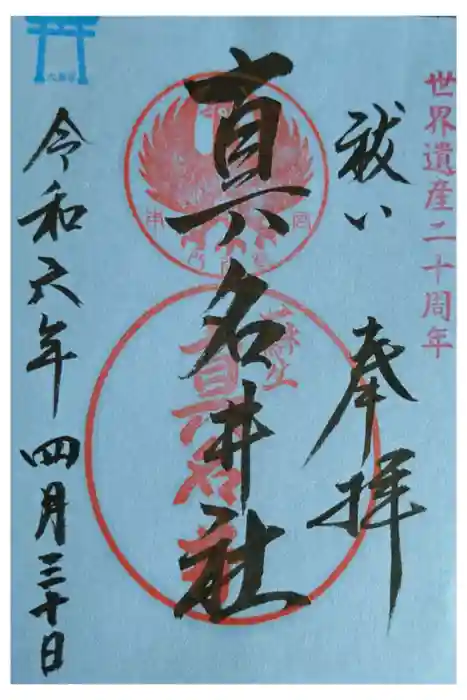 世界遺産二十周年
祓い 奉拝
真名井社
令和六年 四月三十日